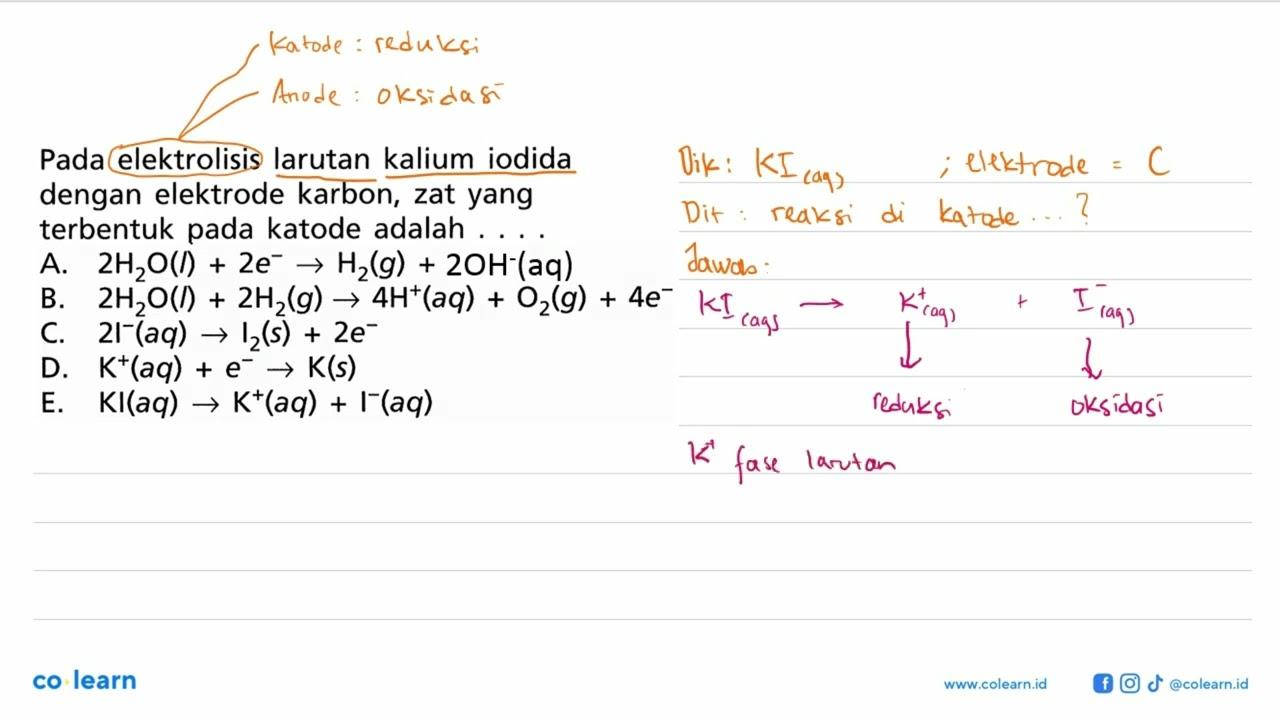 Katode : reduksi
Anode : oksidasi
Pada elektrolisis larutan kalium iodida
dengan elektrode karbon, zat yang
terbentuk pada katode adalah . . . .
A. 2H₂O(l) + 2e⁻ → H₂(g) + 2OH⁻(aq)
B. 2H₂O(l) + 2H₂(g) → 4H⁺(aq) + O₂(g) + 4e⁻
C. 2I⁻(aq) → I₂(s) + 2e⁻
D. K⁺(aq) + e⁻ → K(s)
E. KI(aq) → K⁺(aq) + I⁻(aq)
Dik : KI(aq) ; elektrode = C
Dit : reaksi di katode ... ?
Jawab :
KI(aq) → K⁺(aq) + I⁻(aq)
reduksi oksidasi
K⁺ fase larutan
co learn
www.colearn.id @colearn.id